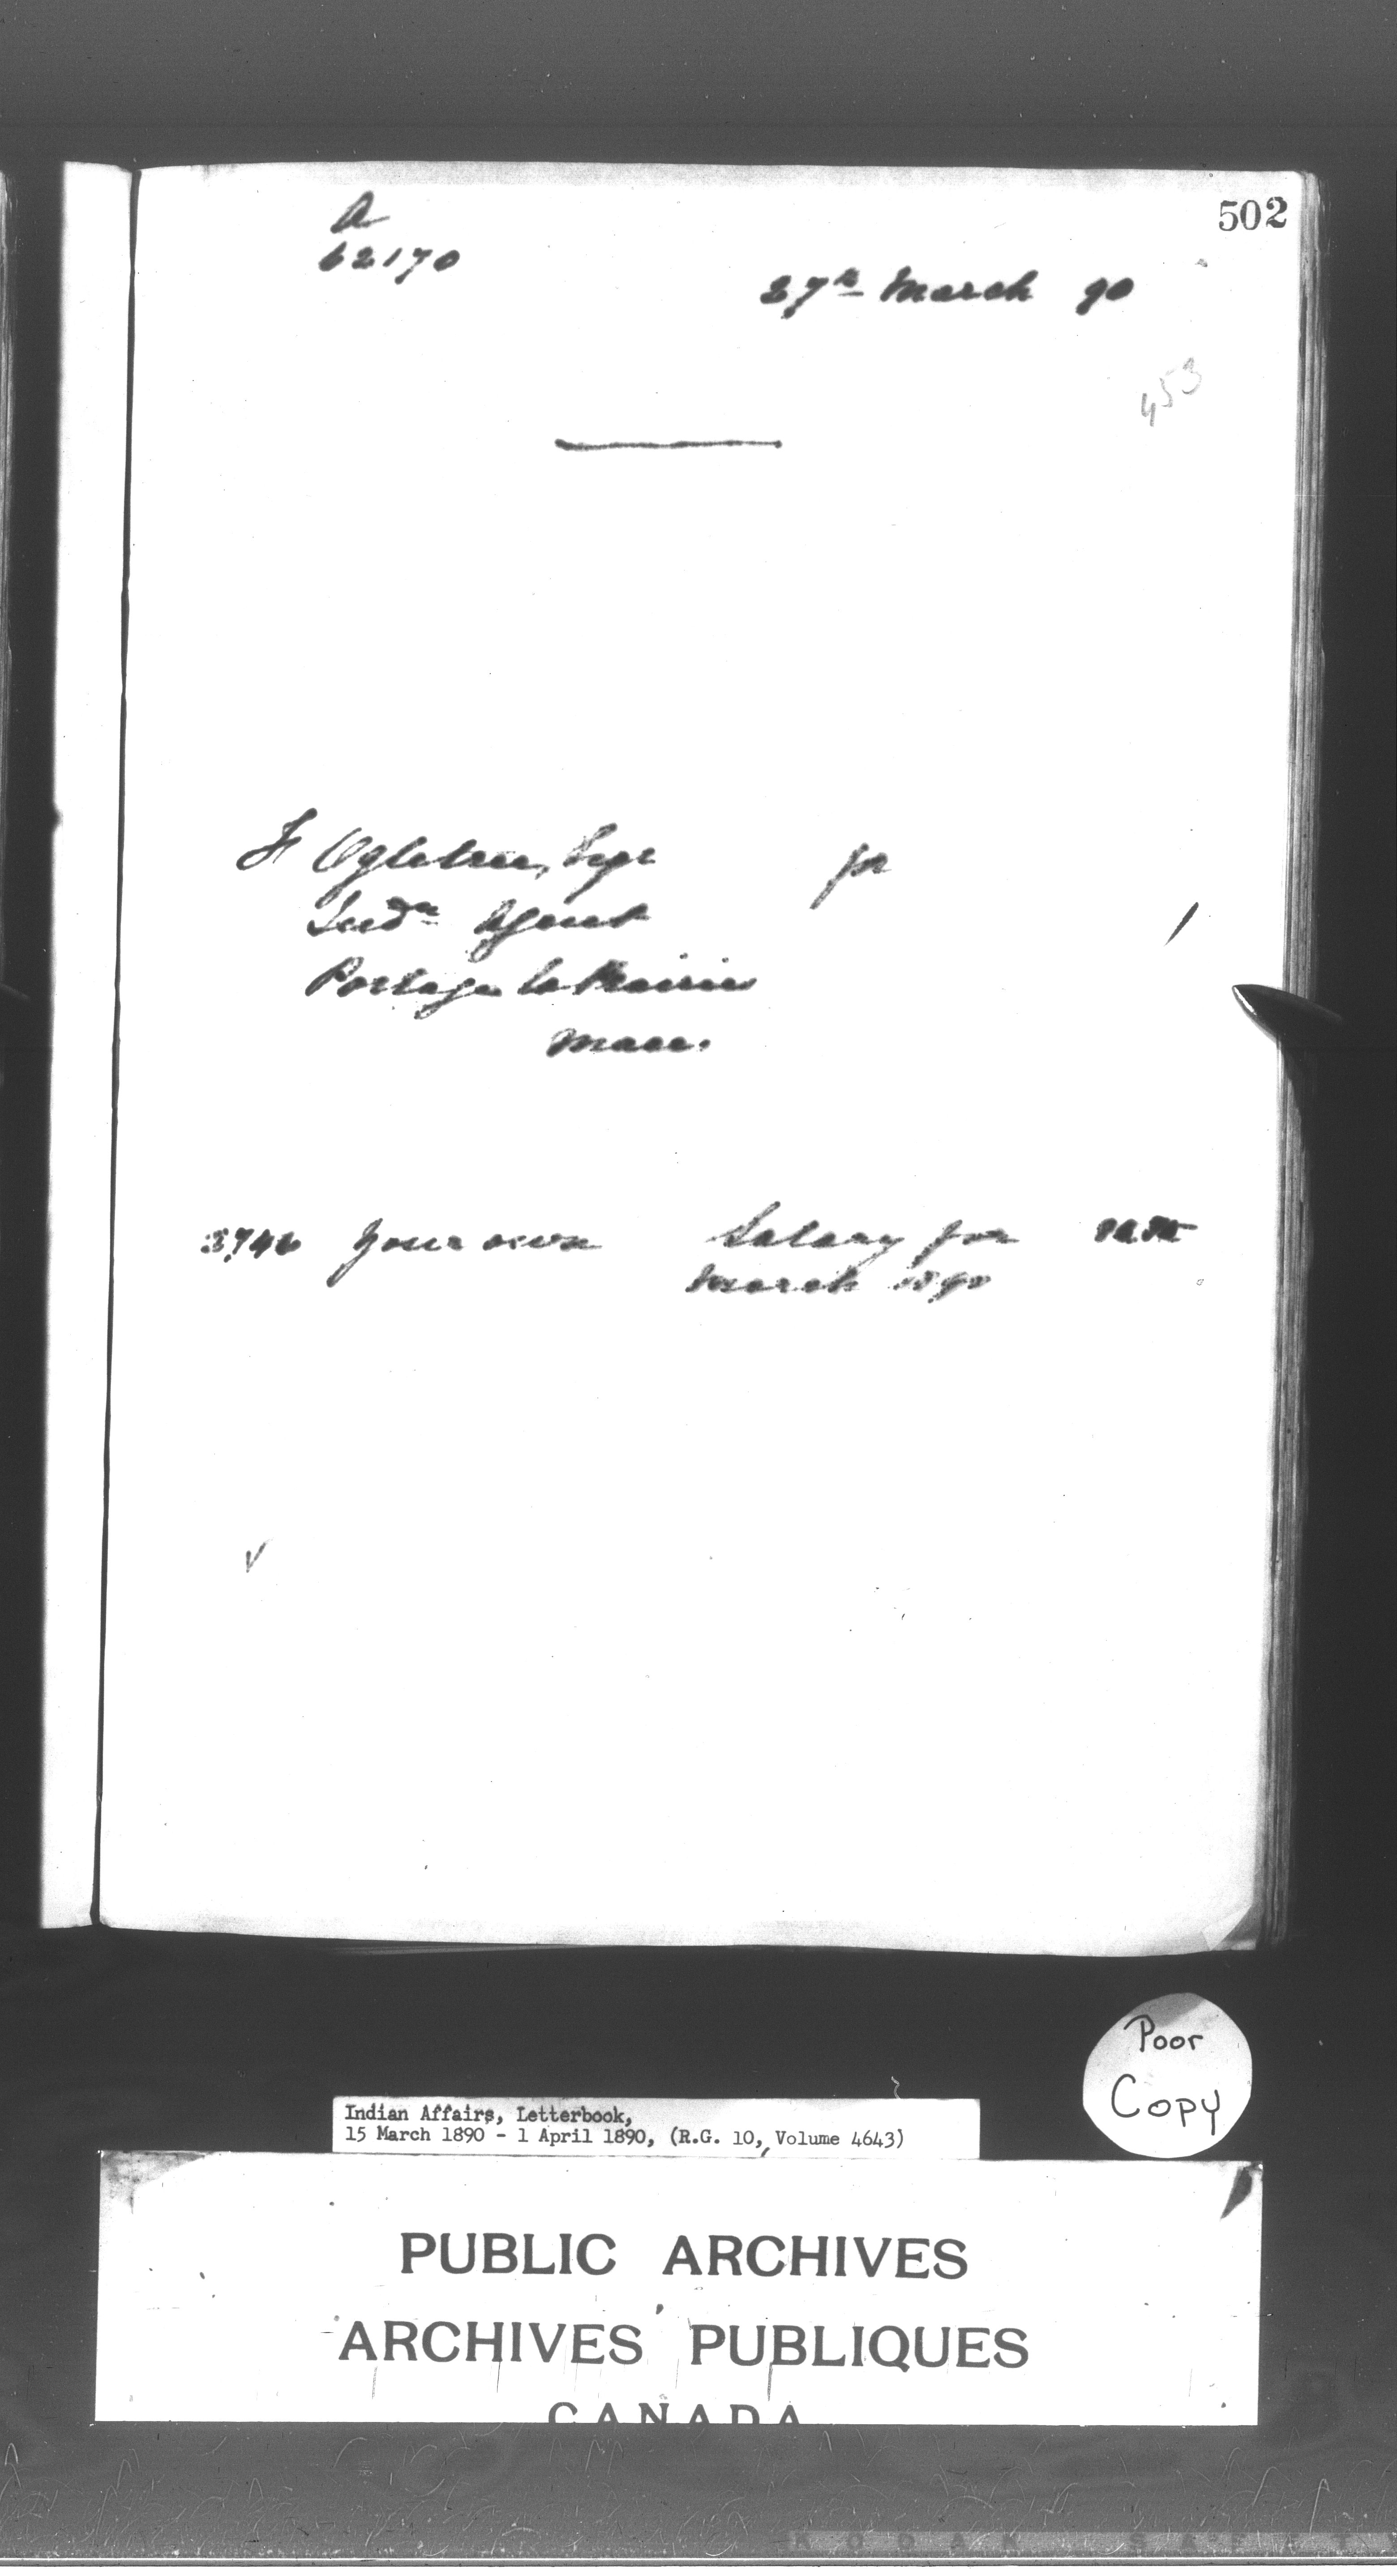 502
A
62170
27th March 90
453
F Ogletree, Esqr
Indn Agent
Portage la Prairie
Man.
3746 Your own Salary for
March 1890
Poor
Copy
Indian Affairs, Letterbook,
15 March 1890 - 1 April 1890, (R.G. 10, Volume 4643)
PUBLIC ARCHIVES
ARCHIVES PUBLIQUES
CANADA